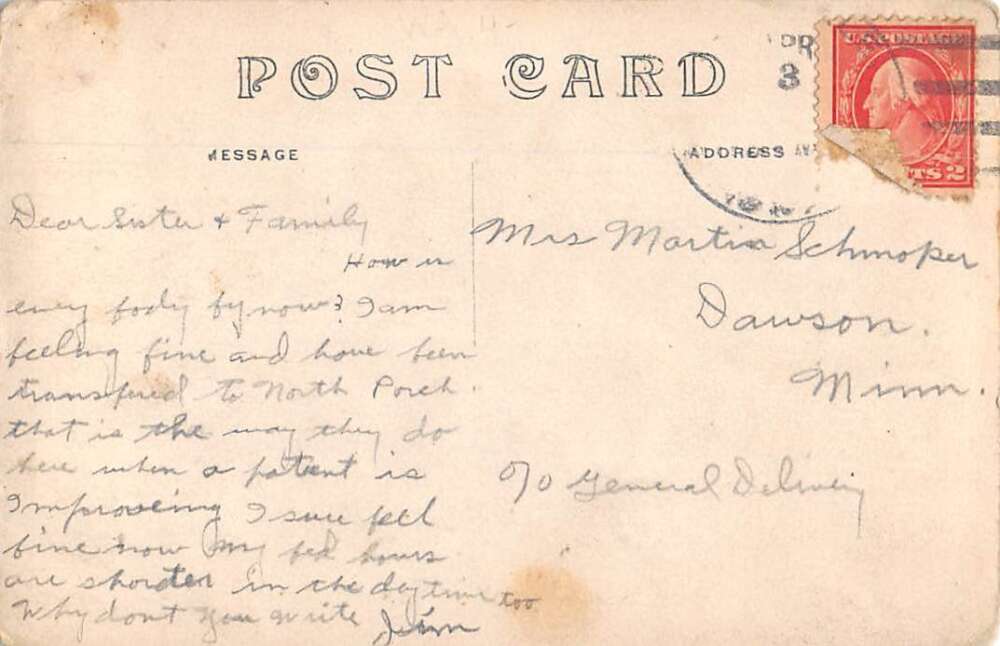 POST CARD
MESSAGE
ADDRESS
PR
3
U.S. POSTAGE
TS 2
Dear Sister & Family
How is
every body by now? I am
feeling fine and have been
transfered to North Porch.
that is the way they do
here when a patient is
Improveing I sure feel
fine now My bed hours
are shorter in the daytime too
Why dont you write Jim
Mrs Martin Schmoker
Dawson.
Minn.
c/o General Delivery